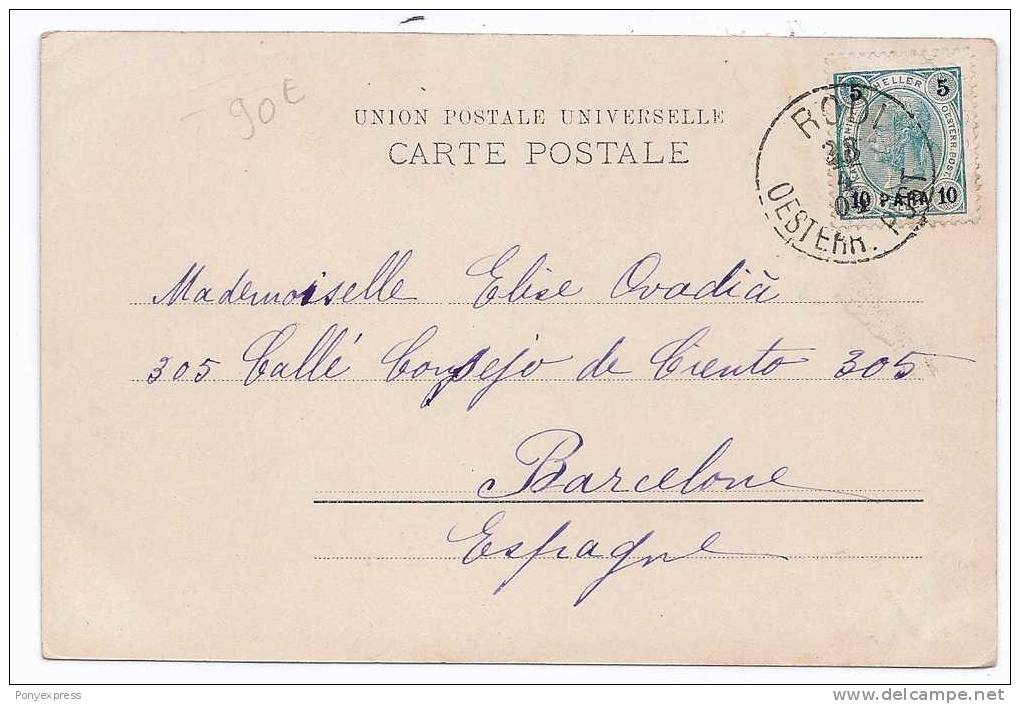 90€
UNION POSTALE UNIVERSELLE
CARTE POSTALE
5 HELLER 5
10 PARA 10
OESTERR. POST
RODI
28
4
04
OESTERR. POST
Mademoiselle Elise Ovadià
305 Callé Consejo de Ciento 305
Barcelone
Espagne
Ponyexpress
delcampe.net